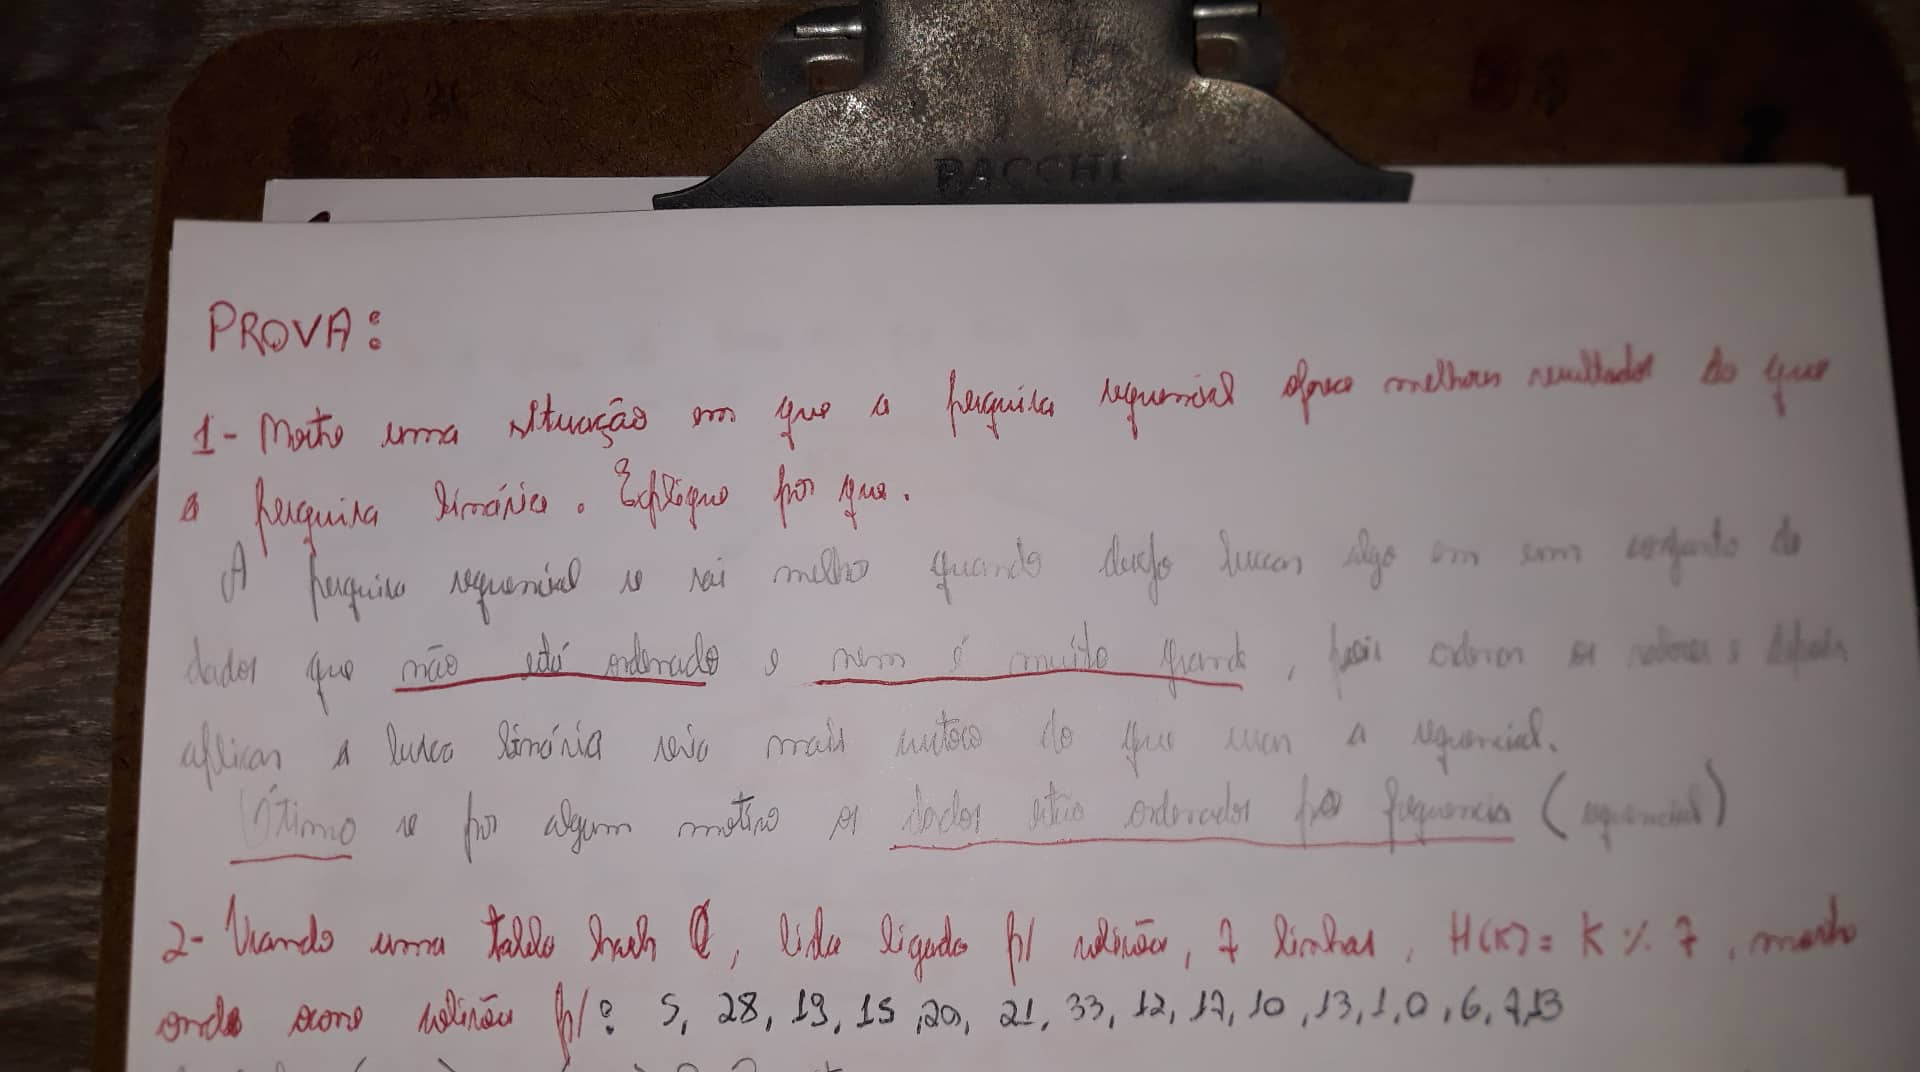 PACCHI
PROVA:
1- Mostre uma situação em que a pesquisa sequencial oferece melhores resultados do que
a pesquisa binária. Explique por que.
A pesquisa sequencial se sai melho quando desejo buscar algo em um conjunto de
dados que não está ordenado e nem é muito grande, pois ordenar os valores e depois
aplicar a busca binária seria mais custoso do que usar a sequencial.
Ótimo se por algum motivo os dados estão ordenados por frequencia (sequencial)
2- Usando uma tabela hash, lista ligada p/ colisão, 7 linhas, H(K) = K % 7, mostre
onde ocorre colisão p/: 5, 28, 19, 15, 20, 21, 33, 12, 17, 10, 13, 1, 0, 6, 7, 13